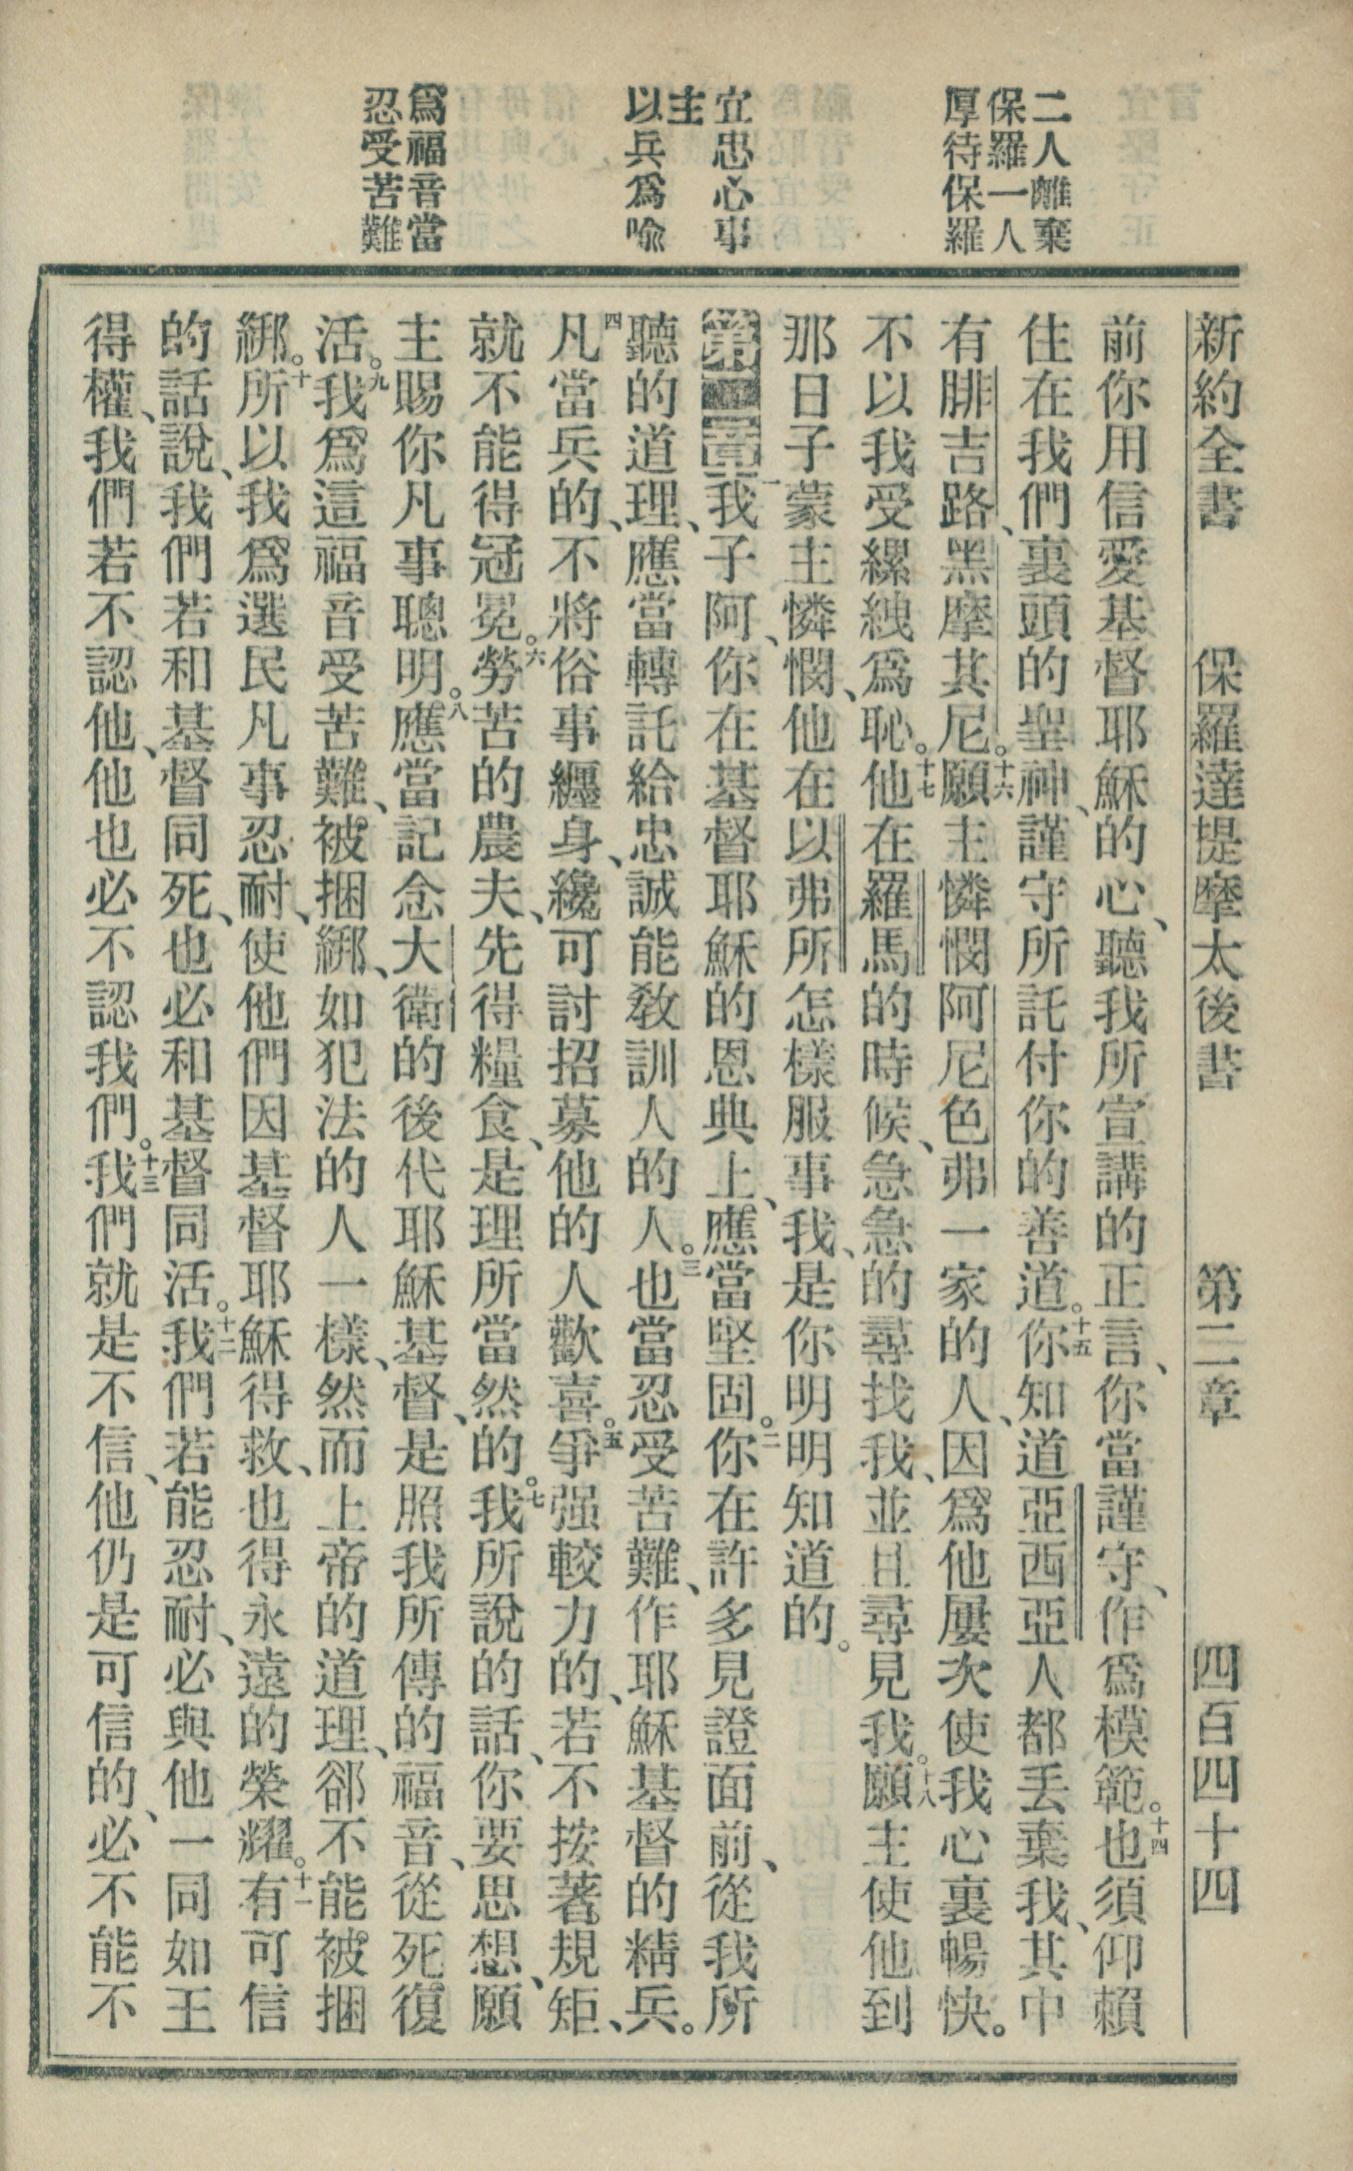 新約全書　保羅達提摩太後書　第二章　四百四十四
二人離棄
保羅一人
厚待保羅
宜忠心事
主
以兵爲喩
爲福音當
忍受苦難
前你用信愛基督耶穌的心、聽我所宣講的正言、你當謹守、作爲模範。十四也須仰賴
住在我們裏頭的聖神、謹守所託付你的善道。十五你知道亞西亞人都丢棄我、其中
有腓吉路、黑摩其尼。十六願主憐憫阿尼色弗一家的人、因爲他屢次使我心裏暢快。
不以我受縲絏爲恥。十七他在羅馬的時候、急急的尋找我、並且尋見我。十八願主使他到
那日子蒙主憐憫、他在以弗所怎樣服事我、是你明明知道的。
第二章一我子阿、你在基督耶穌的恩典上、應當堅固。二你在許多見證面前、從我所
聽的道理、應當轉託給忠誠能敎訓人的人。三也當忍受苦難、作耶穌基督的精兵。
四凡當兵的、不將俗事纏身、纔可討招募他的人歡喜。五爭强較力的、若不按著規矩、
就不能得冠冕。六勞苦的農夫、先得糧食、是理所當然的。七我所說的話、你要思想、願
主賜你凡事聰明。八應當記念大衞的後代耶穌基督、是照我所傳的福音、從死復
活。九我爲這福音受苦難、被捆綁、如犯法的人一樣、然而上帝的道理、卻不能被捆
綁。十所以我爲選民凡事忍耐、使他們因基督耶穌得救、也得永遠的榮耀。十一有可信
的話說、我們若和基督同死、也必和基督同活。十二我們若能忍耐、必與他一同如王
得權、我們若不認他、他也必不認我們。十三我們就是不信、他仍是可信的、必不能不